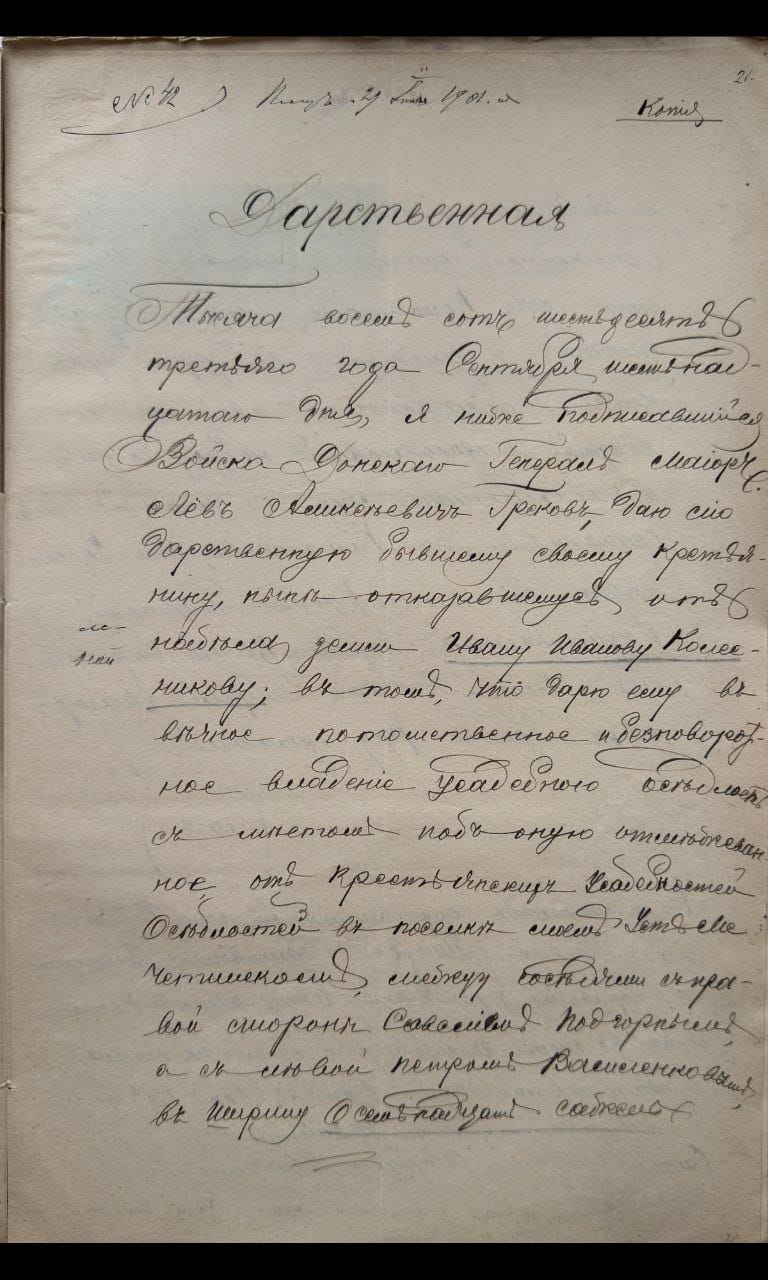 21.
№ 42
29 1901. г
Копія
Дарственная
Тысяча восемь сотъ шестьдесятъ
третьяго года Сентября шестьнад-
цатаго дня, я ниже подписавшійся
Войска Донскаго Генералъ Маіоръ
Лёвъ Алексѣевичъ Грековъ, даю сію
дарственную бывшему своему крестья-
нину, нынѣ отказавшемуся отъ
надѣла земли Ивану Иванову Колес-
никову; въ томъ, что дарю ему въ
вѣчное потомственное и безповорот-
ное владеніе усадебною осѣдлость
съ мѣстомъ подъ оную отмѣжеван-
ное, отъ Крестьянскихъ Усадебностей
Осѣдлостей въ поселкѣ моемъ Усть Ме
четинскомъ, между сосѣдями съ пра-
вой стороны Савеліемъ Подгорнымъ,
а съ лѣвой Петромъ Василенковымъ,
въ ширину Осемьнадцать сажень